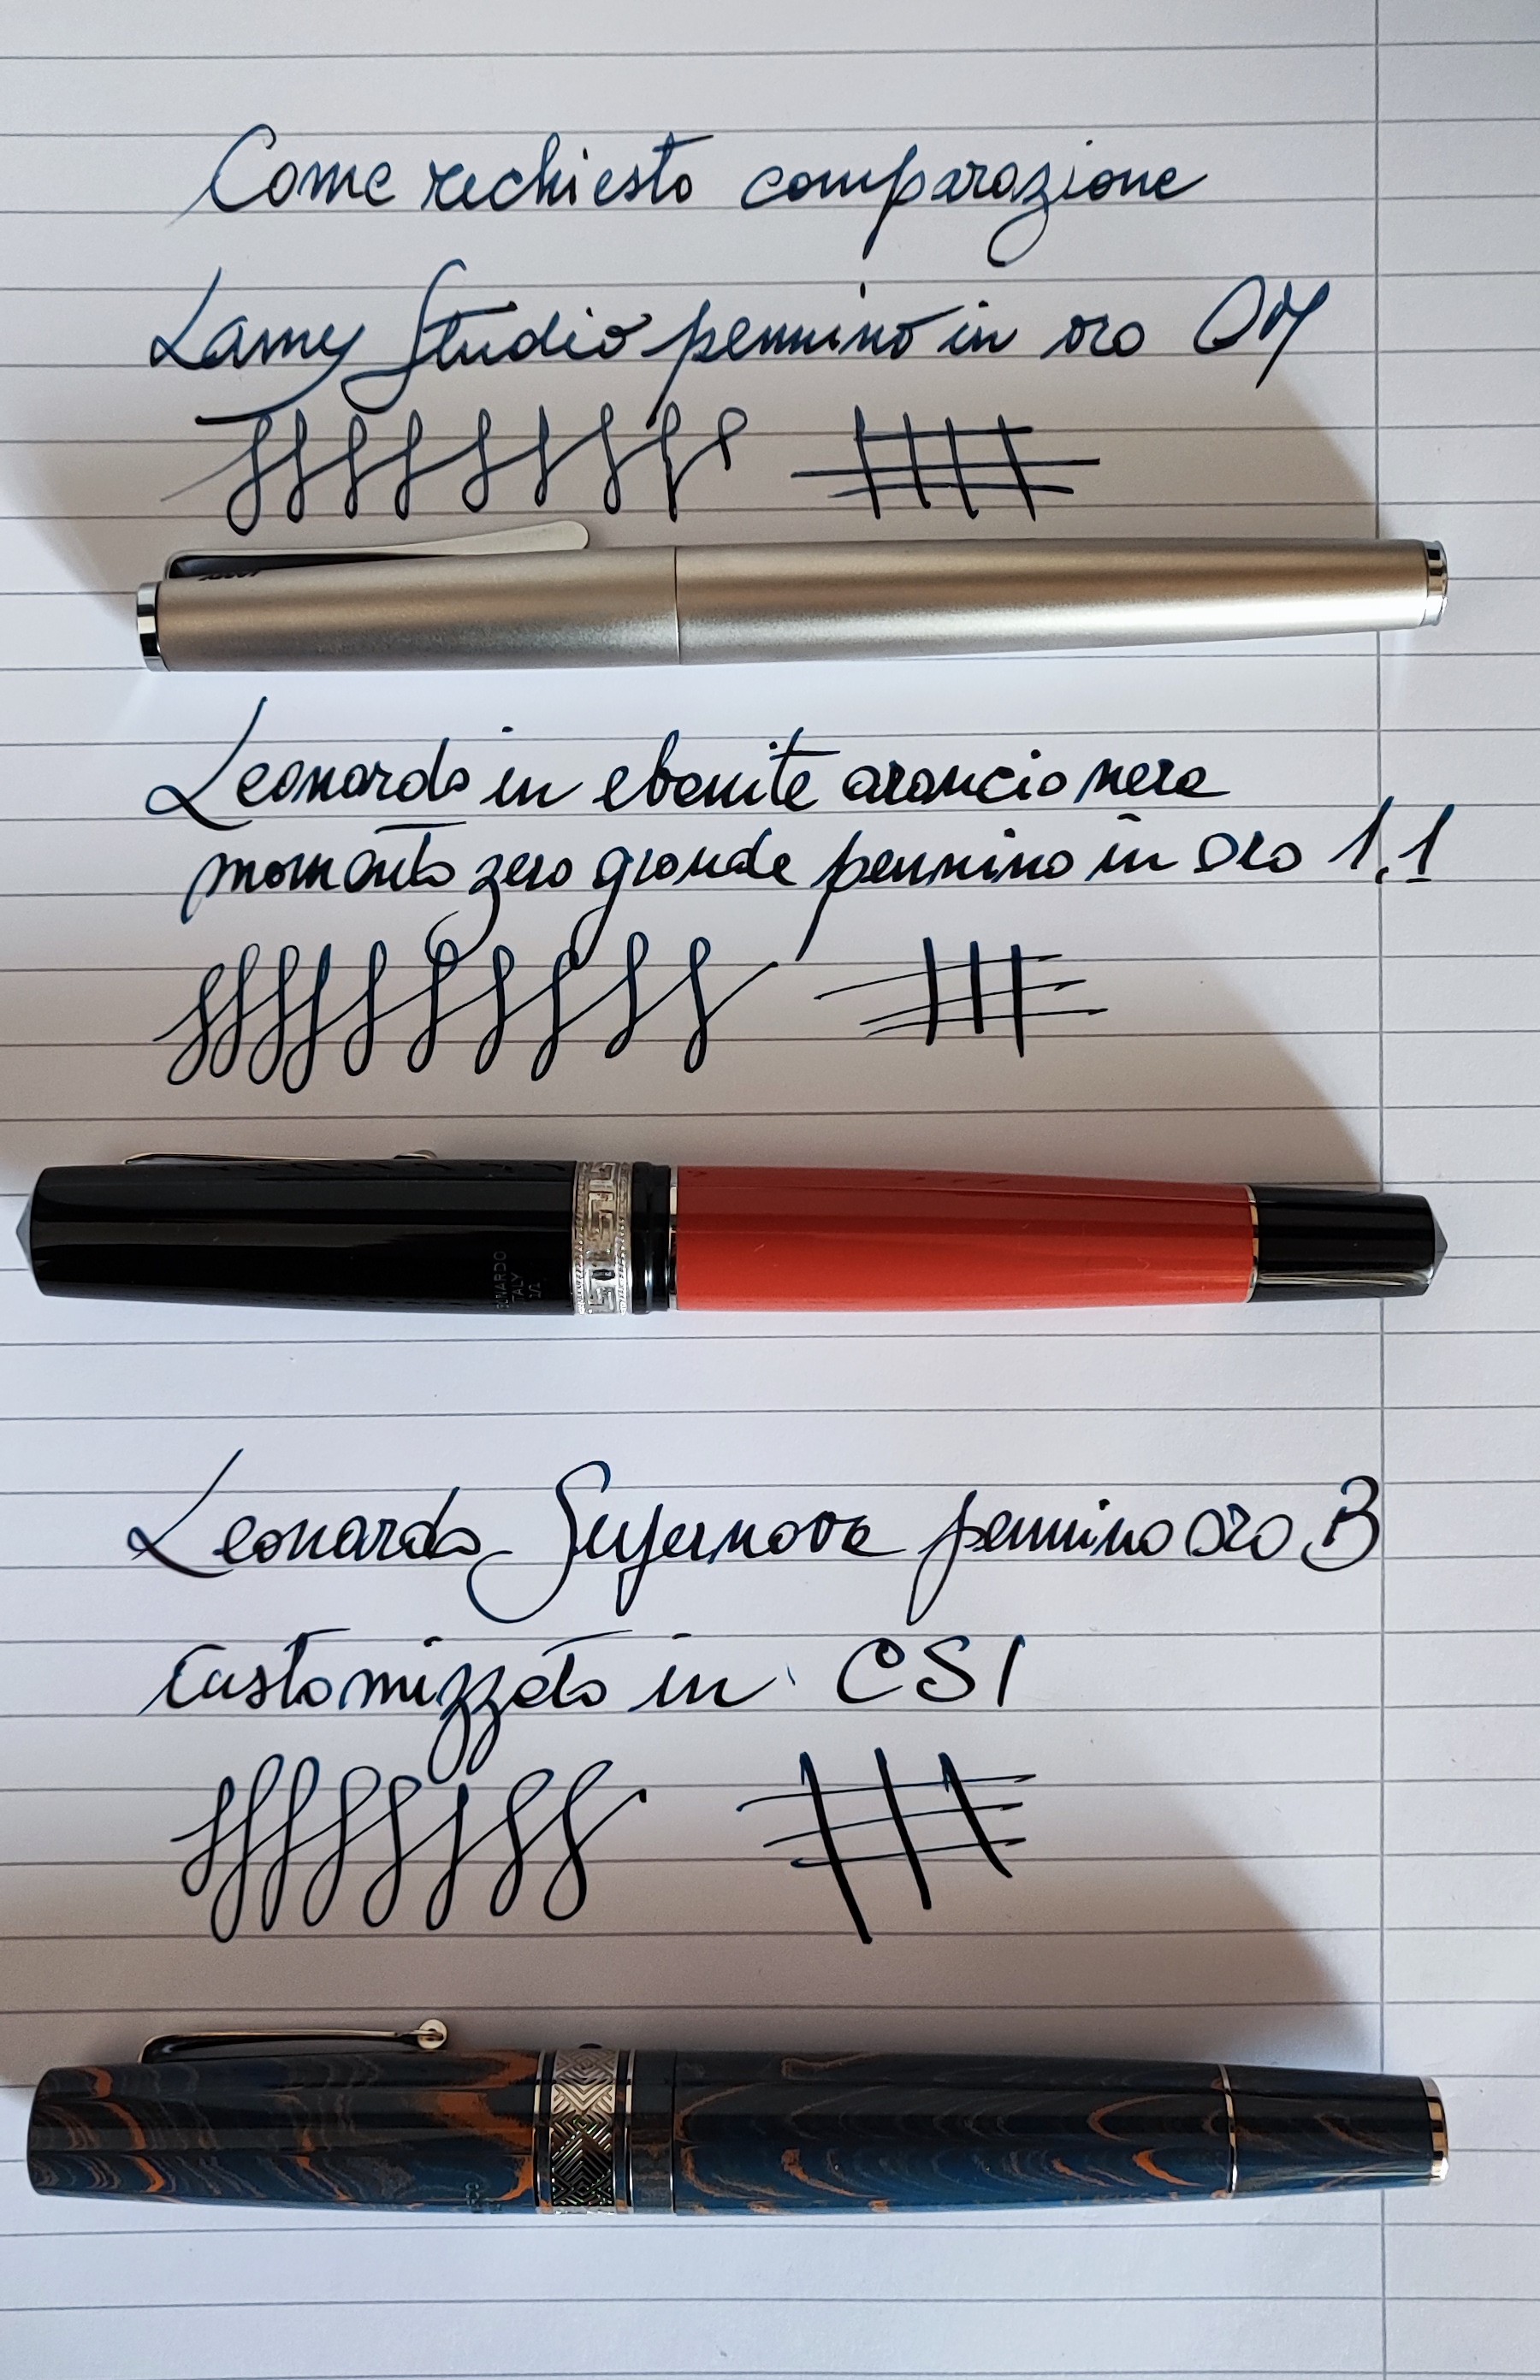 Come richiesto comparazione
Lamy Studio pennino in oro OM
Leonardo in ebonite arancio nera
momento zero grande pennino in oro 1.1
Leonardo Supernova pennino oro B
customizzato in CSI